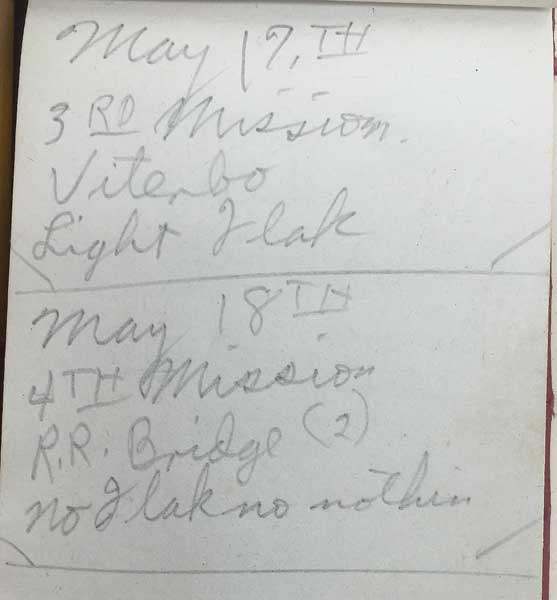 May 17, TH
3 RD Mission.
Viterbo
Light Flak
May 18 TH
4 TH Mission
R.R. Bridge (2)
no Flak no nothin